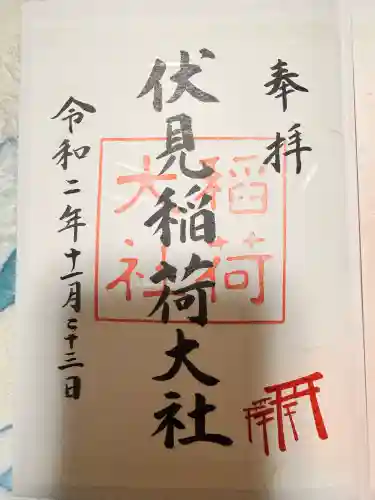 奉拝
伏見稲荷大社
稲荷
大社
令和二年十一月二十三日